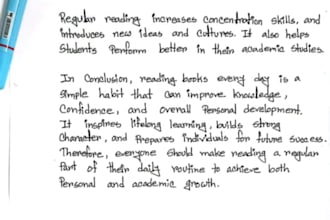 Regular reading increases concentration skills, and
introduces new ideas and cultures. It also helps
students perform better in their academic studies.
In conclusion, reading books every day is a
simple habit that can improve knowledge,
confidence, and overall personal development.
It inspires lifelong learning, builds strong
character, and prepares individuals for future success.
Therefore, everyone should make reading a regular
part of their daily routine to achieve both
personal and academic growth.